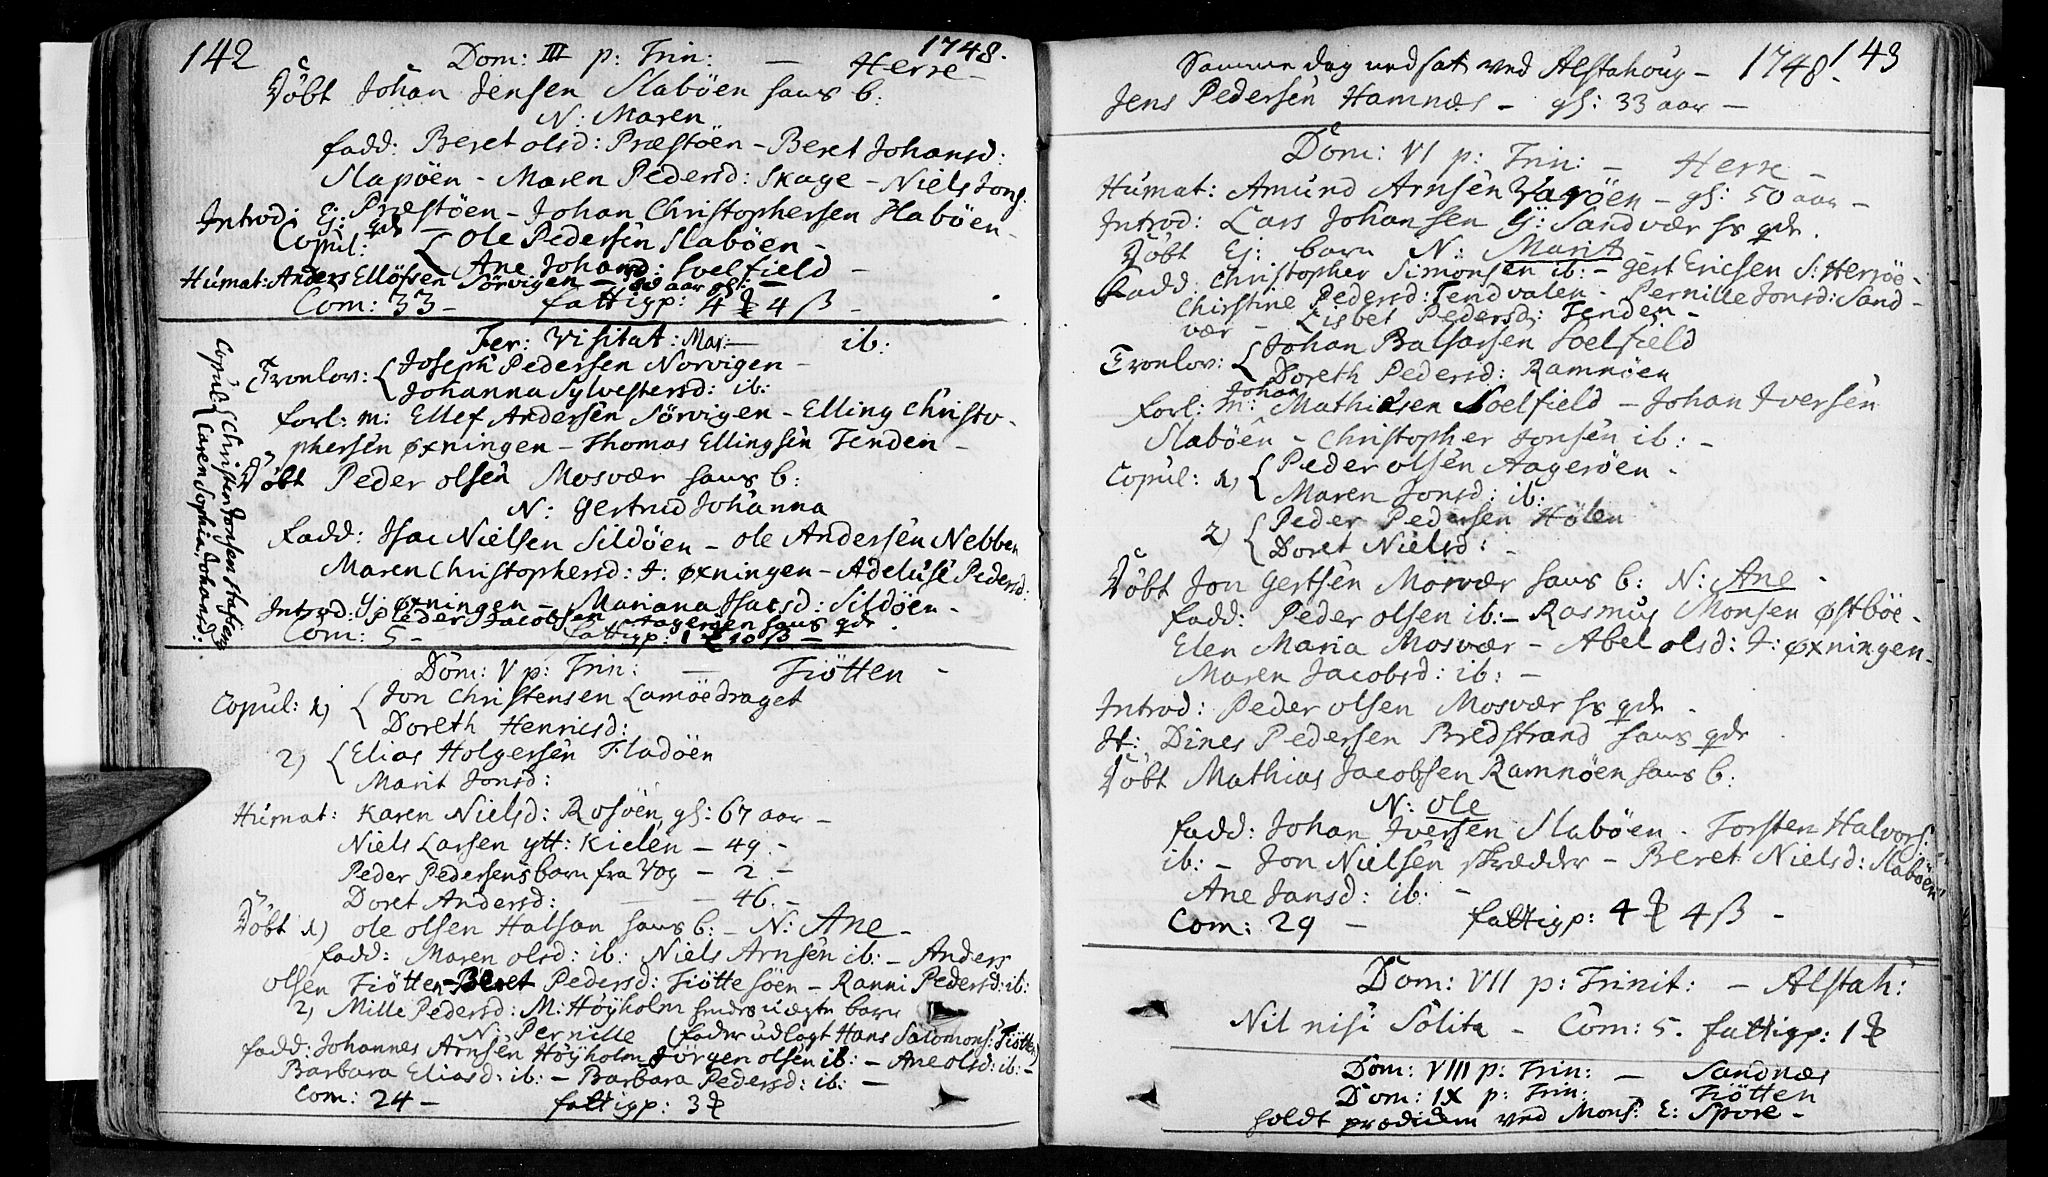 142
1748.
Dom: III p: Trin: — Herre —
Döbt Johan Jensen Slabøen hans b:
N: Maren
fadd: Beret olsd: Præstöen - Beret Johansd:
Slapöen - Maren Pedersd: Skage - Niels Jons:
Præstöen - Johan Christophersen Slabøen -
Introd: Ej: qde
Copul: { Ole Pedersen Slabøen -
Ane Johansd: Soelfield -
Humat: Anders Ellofsen Sörvigen — aar gl:
Com: 33 - fattigp: 4 ß -
Fer: Visitat: Mar: — ib:
Tronlov: { Joseph Pedersen Norvigen -
Johanna Sylvestersd: ib:
forl: m: Ellef Andersen Sörvigen - Elling Christo-
phersen Øxningen - Thomas Ellingsen Tenden -
Döbt Peder olsen Mosvær hans b:
N: Gertrud Johanna
Fadd: Isac Nielsen Sildöen - ole Andersen Nebben
Maren Christophersd: I: øxningen - Adeluse Pedersd:
Y: øxningen - Mariana Isacsd: Sildöen -
Introd: Peder Jacobsen hans qde.
Com: 5 - fattigp: 1 10 ß —
Copul: { Christen Jonsen
Caren Sophia Johansd:
Dom: V p: Trin: — Tiötten -
Copul: 1) { Jon Christensen Lamöedraget
Doreth Henricsd:
2) { Elias Holgersen Fladöen
Marit Jonsd:
Humat: Karen Nielsd: Rosöen gl: 67 aar -
Niels Larsen ytt: Kielen - 49. -
Peder Pedersens barn fra Vog - 2. -
Doret Andersd: - 46. -
Döbt 1) ole olsen Halsan hans b: - N: Ane -
fadd: Maren olsd: ib: Niels Arnsen ib: - Anders
olsen Tiötten - Beret Pedersd: Tiöttesöen - Ranni Pedersd: ib:
2) Mille Pedersd: M: Höyholm hendes uægte barn
N: Pernille (fader udlagt Hans Salomons: Tiötten)
fadd: Johannes Arnsen Höyholm Jörgen olsen ib: - Ane olsd: ib: -
Barbara Eliasd: ib: - Barbara Pedersd: ib: —
Com: 24 - fattigp: 3
143
1748.
Samme dag nedsat ved Alstahoug -
Jens Pedersen Hamnæs - gl: 33 aar —
Dom: VI p: Trin: — Herre —
Humat: Amund Arnsen - gl: 50 aar -
Introd: Lars Johansen Y: Sandvær hs qde.
Döbt Ej: barn N: Marit
Fadd: Christopher Simonsen ib: - Gert Ericsen S: Herröe -
Christine Pedersd: Tendvalen - Pernille Jonsd: Sand-
vær - Lisbet Pedersd: Tenden -
Tronlov: { Johan Balsarsen Soelfield
Doreth Pedersd: Ramnöen
forl: m: Johan Mathiesen Soelfield - Johan Iversen
Slabøen - Christopher Jonsen ib: -
Copul: 1) { Peder olsen Aageröen -
Maren Jonsd: ib:
2) { Peder Pedersen Holen
Doret Nielsd: -
Döbt Jon Gertsen Mosvær hans b: N: Ane -
fadd: Peder olsen ib: - Rasmus Monsen Østböe -
Elen Maria Mosvær - Abel olsd: I: øxningen -
Maren Jacobsd: ib: -
Introd: Peder olsen Mosvær hs qde -
It: Dines Pedersen Bredstrand hans qde
Döbt Mathias Jacobsen Ramnöen hans b:
N: ole
fadd: Johan Iversen Slabøen - Torsten Halvors:
ib: - Jon Nielsen skrædder - Beret Nielsd: Slabøen
Ane Jansd: ib: -
Com: 29 - fattigp: 4 4 ß -
Dom: VII p: Trinit: - Alstah:
Nil nisi Solita - Com: 5. fattigp: 1
Dom: VIII p: Trin: — Sandnæs
Dom: IX p: Trin: - Tiötten
holdt prædiken ved Mons: E: Spore -